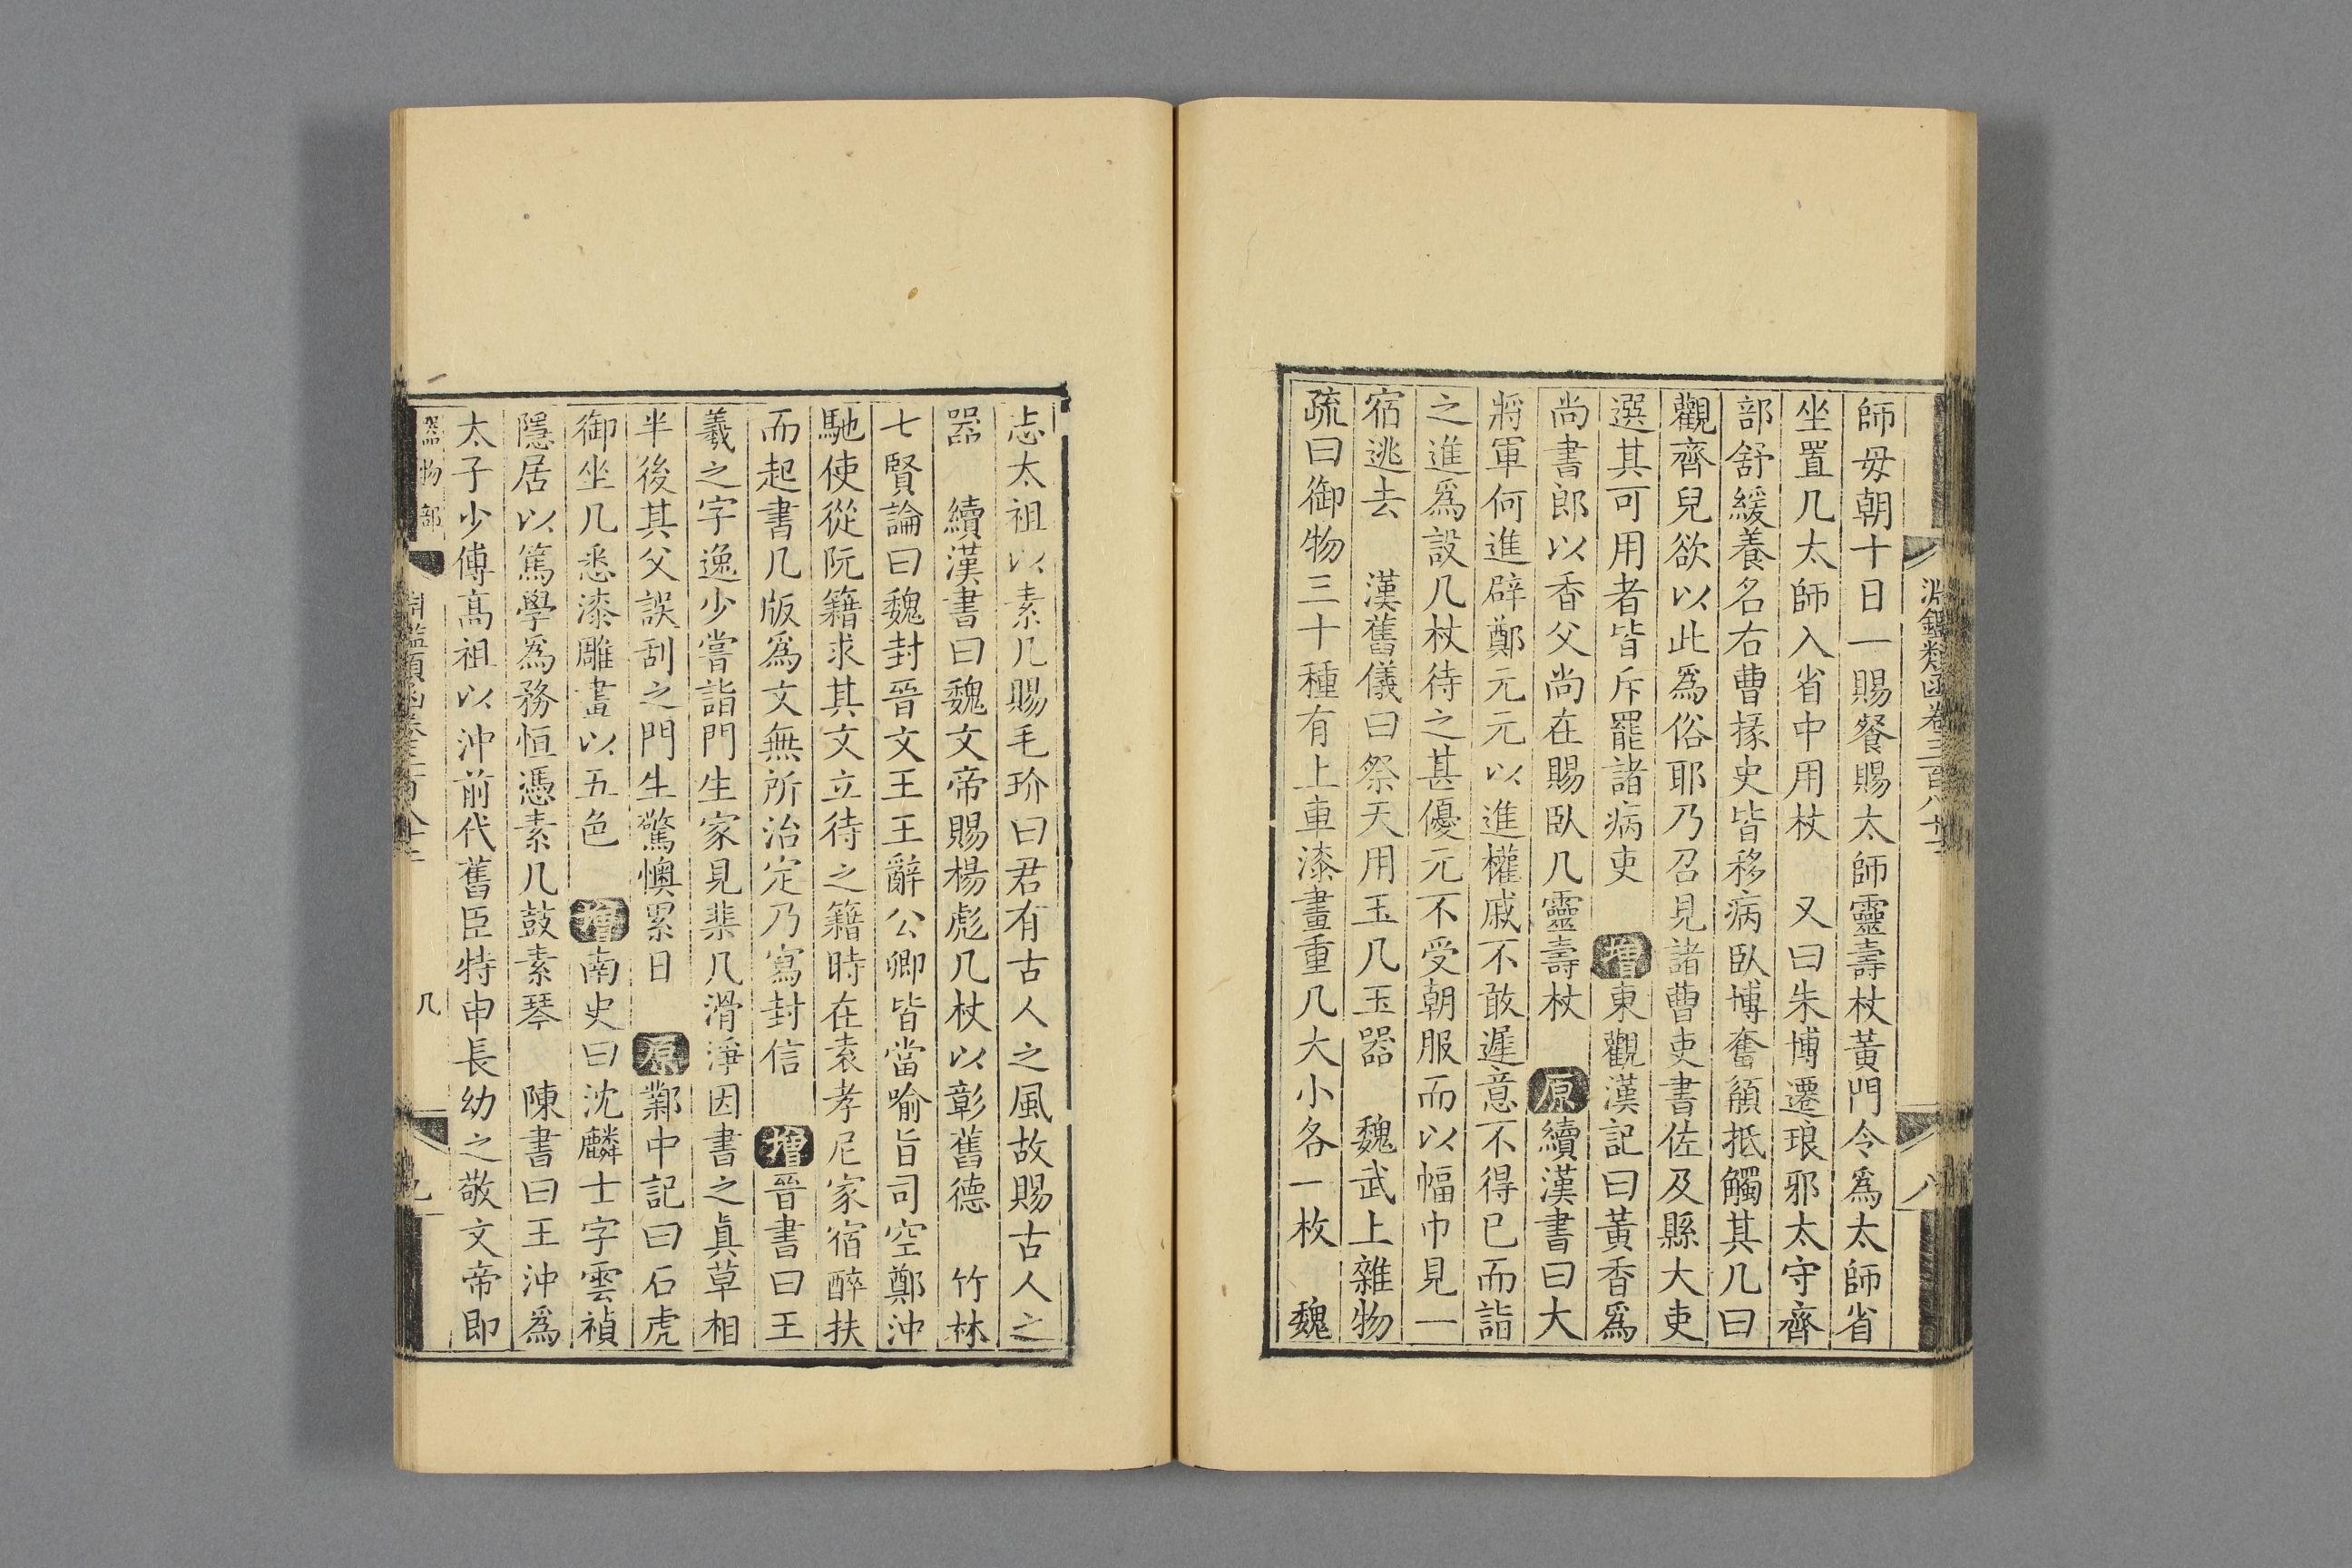 師毋朝十日一賜餐賜太師靈壽杖黃門令爲太師省
坐置几太師入省中用杖　又曰朱博遷琅邪太守齊
部舒緩養名右曹掾史皆移病臥博奮䪼抵觸其几曰
觀齊兒欲以此爲俗耶乃召見諸曹吏書佐及縣大吏
選其可用者皆斥罷諸病吏　增東觀漢記曰黃香爲
尚書郎以香父尚在賜臥几靈壽杖　原續漢書曰大
將軍何進辟鄭元元以進權戚不敢遲意不得已而詣
之進爲設几杖待之甚優元不受朝服而以幅巾見一
宿逃去　漢舊儀曰祭天用玉几玉器　魏武上雜物
疏曰御物三十種有上車漆畫重几大小各一枚　魏
淵鑑類函卷三百八十
八
志太祖以素几賜毛玠曰君有古人之風故賜古人之
器　續漢書曰魏文帝賜楊彪几杖以彰舊德　竹林
七賢論曰魏封晉文王王辭公卿皆當喻旨司空鄭沖
馳使從阮籍求其文立待之籍時在袁孝尼家宿醉扶
而起書几版爲文無所治定乃寫封信　增晉書曰王
羲之字逸少嘗詣門生家見棐几滑淨因書之眞草相
半後其父誤刮之門生驚懊累日　原鄴中記曰石虎
御坐几悉漆雕畫以五色　增南史曰沈麟士字雲禎
隱居以篤學爲務恒憑素几鼓素琴　陳書曰王沖爲
太子少傅高祖以沖前代舊臣特申長幼之敬文帝即
器物部
几